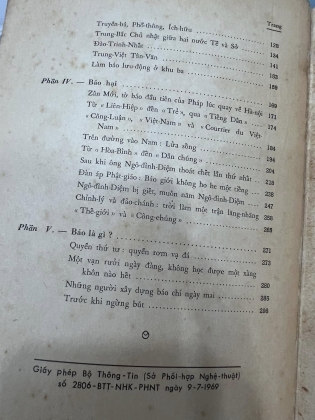 Trang
Truyền-bá, Phổ-thông, Ích-hữu 128
Trung-Bắc Chủ nhật giữa hai nước Tề và Sở 134
Đào-Trinh-Nhất 141
Trung-Việt Tân-Văn
Làm báo lưu-động ở khu ba
Phần IV. — Báo hại
Zân Mới, tờ báo đầu tiên của Pháp lúc quay về Hà-nội
Từ «Liên-Hiệp» đến «Trẻ», qua «Tiếng Dân» 171
«Công-Luận», «Việt-Nam» và «Courrier du Việt
Nam» 184
Trên đường vào Nam : Lửa sông
Từ «Hòa-Bình» đến «Dân chúng»
Sau khi ông Ngô-đình-Diệm thoát chết lần thứ nhất
Đàn áp Phật-giáo : Báo giới không ho he một tiếng
Ngô-đình-Diệm bị giết, muôn năm Ngô-đình-Diệm 247
Chỉnh-lý và đảo-chánh : trời làm một trận lăng-nhăng
«Thế-giới» và «Công-chúng»
Phần V. — Báo là gì ? 271
Quyền thứ tư : quyền rơm vạ đá 273
Một vạn rưởi ngày đàng, không học được một sàng
khôn nào hết
Những người xây dựng báo chí ngày mai
Trước khi ngừng bút
Giấy phép Bộ Thông-Tin (Sở Phối-hợp Nghệ-thuật)
số 2806-BTT-NHK-PHNT ngày 9-7-1969